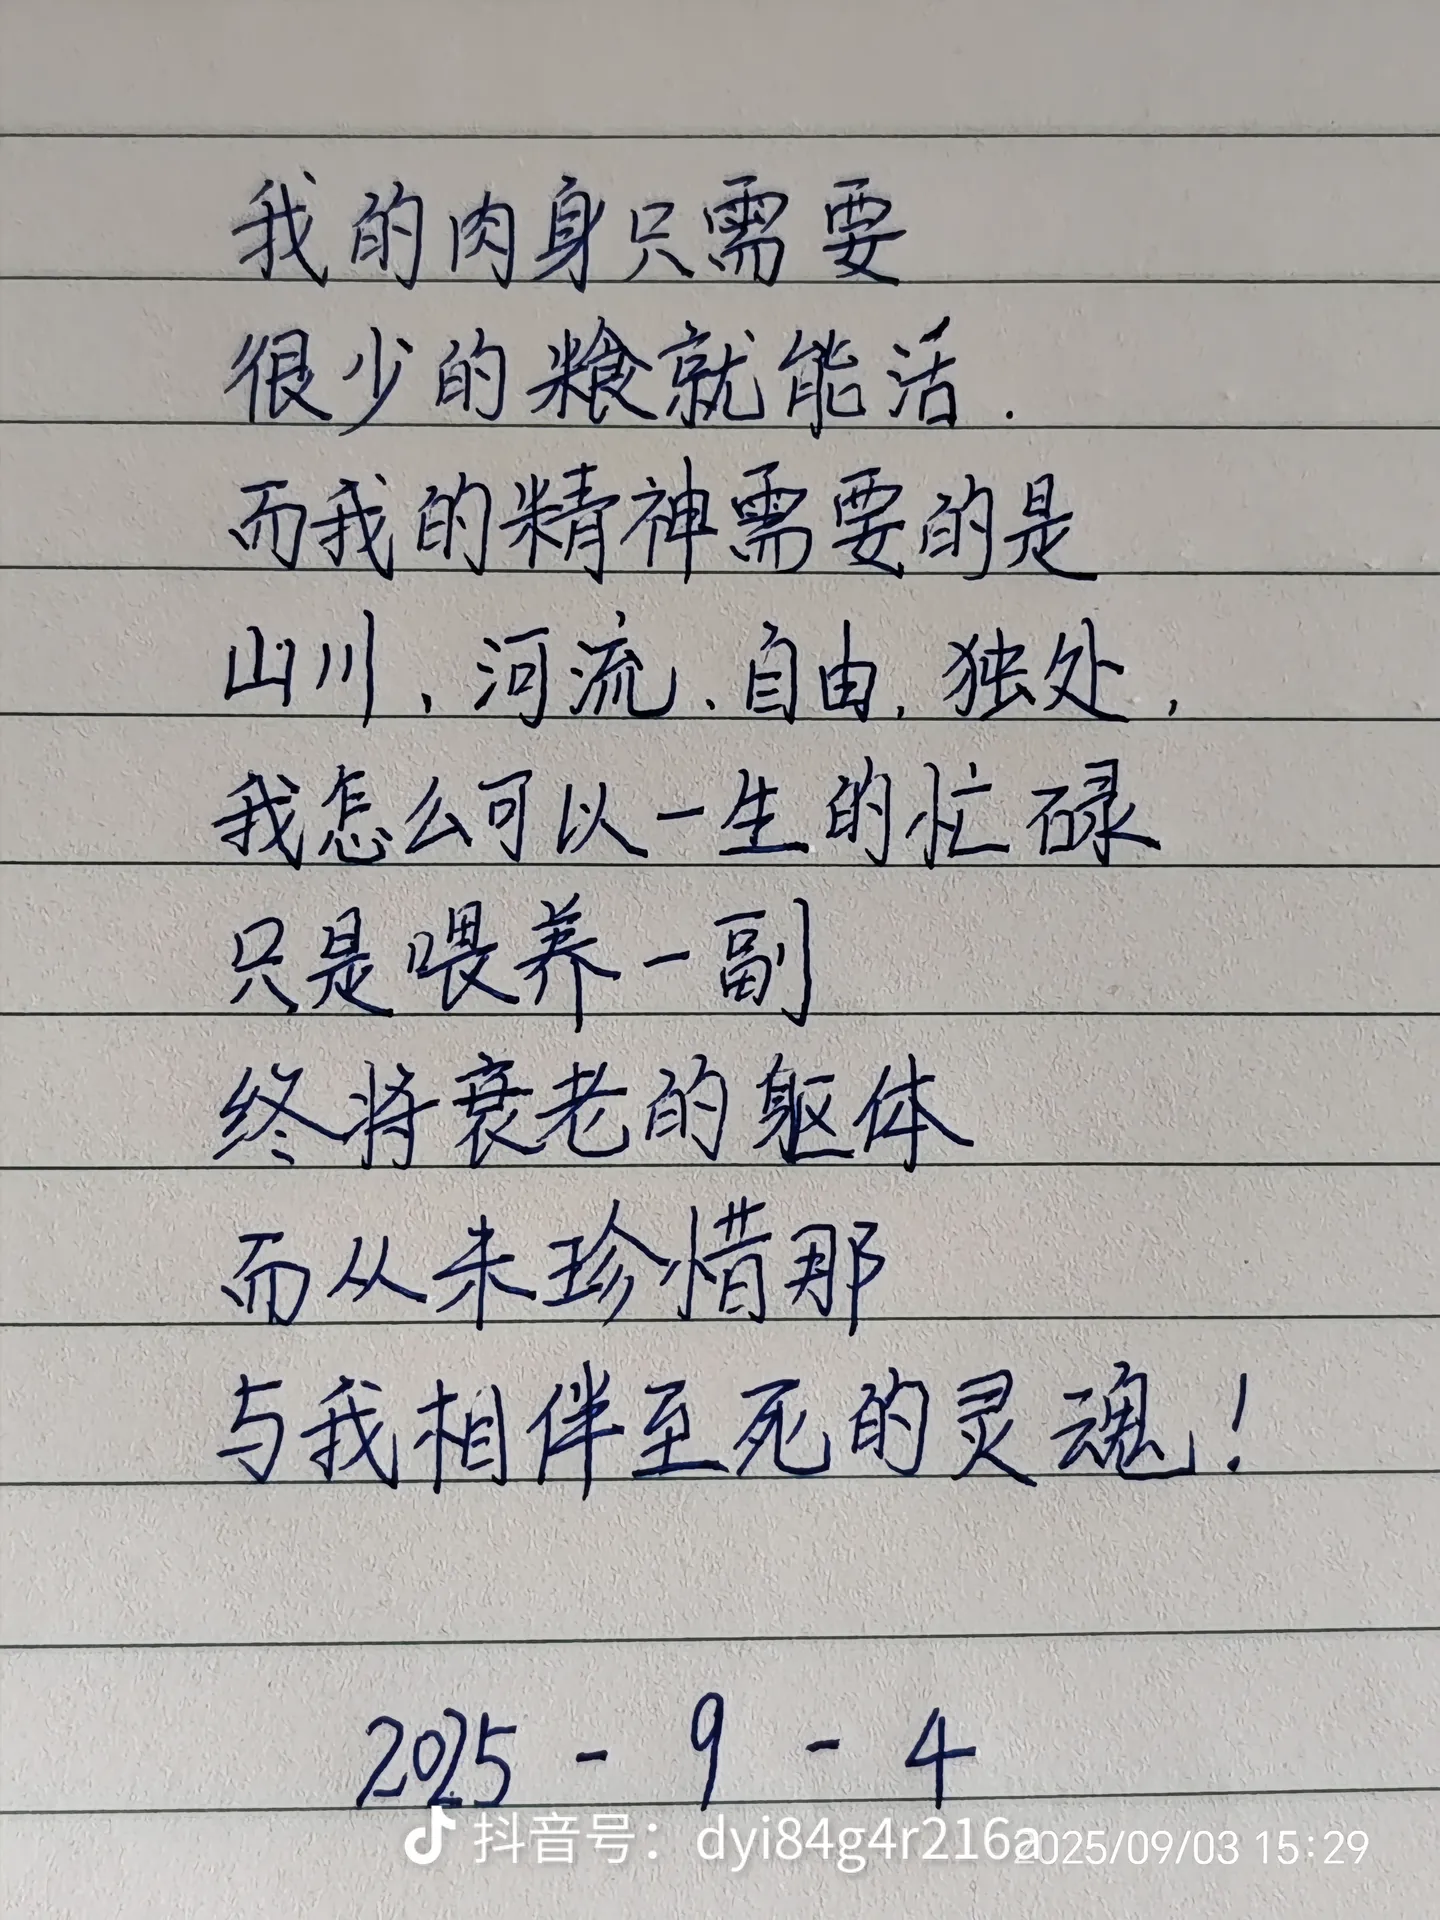 我的肉身只需要
很少的粮就能活.
而我的精神需要的是
山川、河流、自由,独处,
我怎么可以一生的忙碌
只是喂养一副
终将衰老的躯体
而从未珍惜那
与我相伴至死的灵魂!
2025-9-4
抖音号：dyi84g4r216a
2025/09/03 15:29